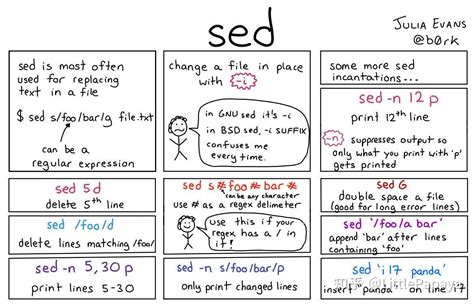 sed
JULIA EVANS
@b0rk
sed is most often
used for replacing
text in a file
$ sed s/foo/bar/g file.txt
can be a
regular expression
change a file in place
with -i
in GNU sed it's -i
in BSD sed, -i SUFFIX
confuses me
every time.
some more sed
incantations...
sed -n 12 p
print 12th line
-n suppresses output so
only what you print with 'p'
gets printed
sed 5d
delete 5th line
sed /foo/d
delete lines matching /foo/
sed -n 5,30 p
print lines 5-30
sed s#foo#bar#
can be any character
use # as a regex delimiter
use this if your
regex has a / in
it!
sed -n s/foo/bar/p
only print changed lines
sed G
double space a file
(good for long error lines)
sed '/foo/a bar'
append 'bar' after lines
containing 'foo'
sed 'i 17 panda'
insert "panda" on line 17
知乎 @LittlePapaya